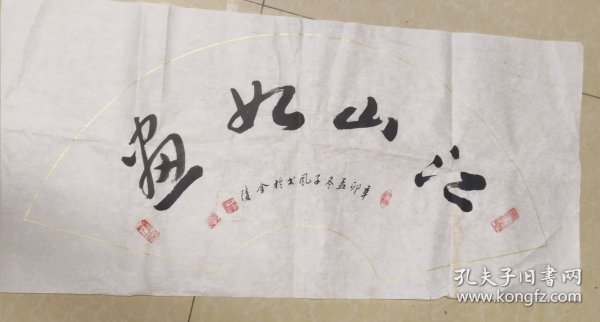 江山如画
辛卯孟冬子风书于金陵
孔夫子旧书网
www.kongfz.com